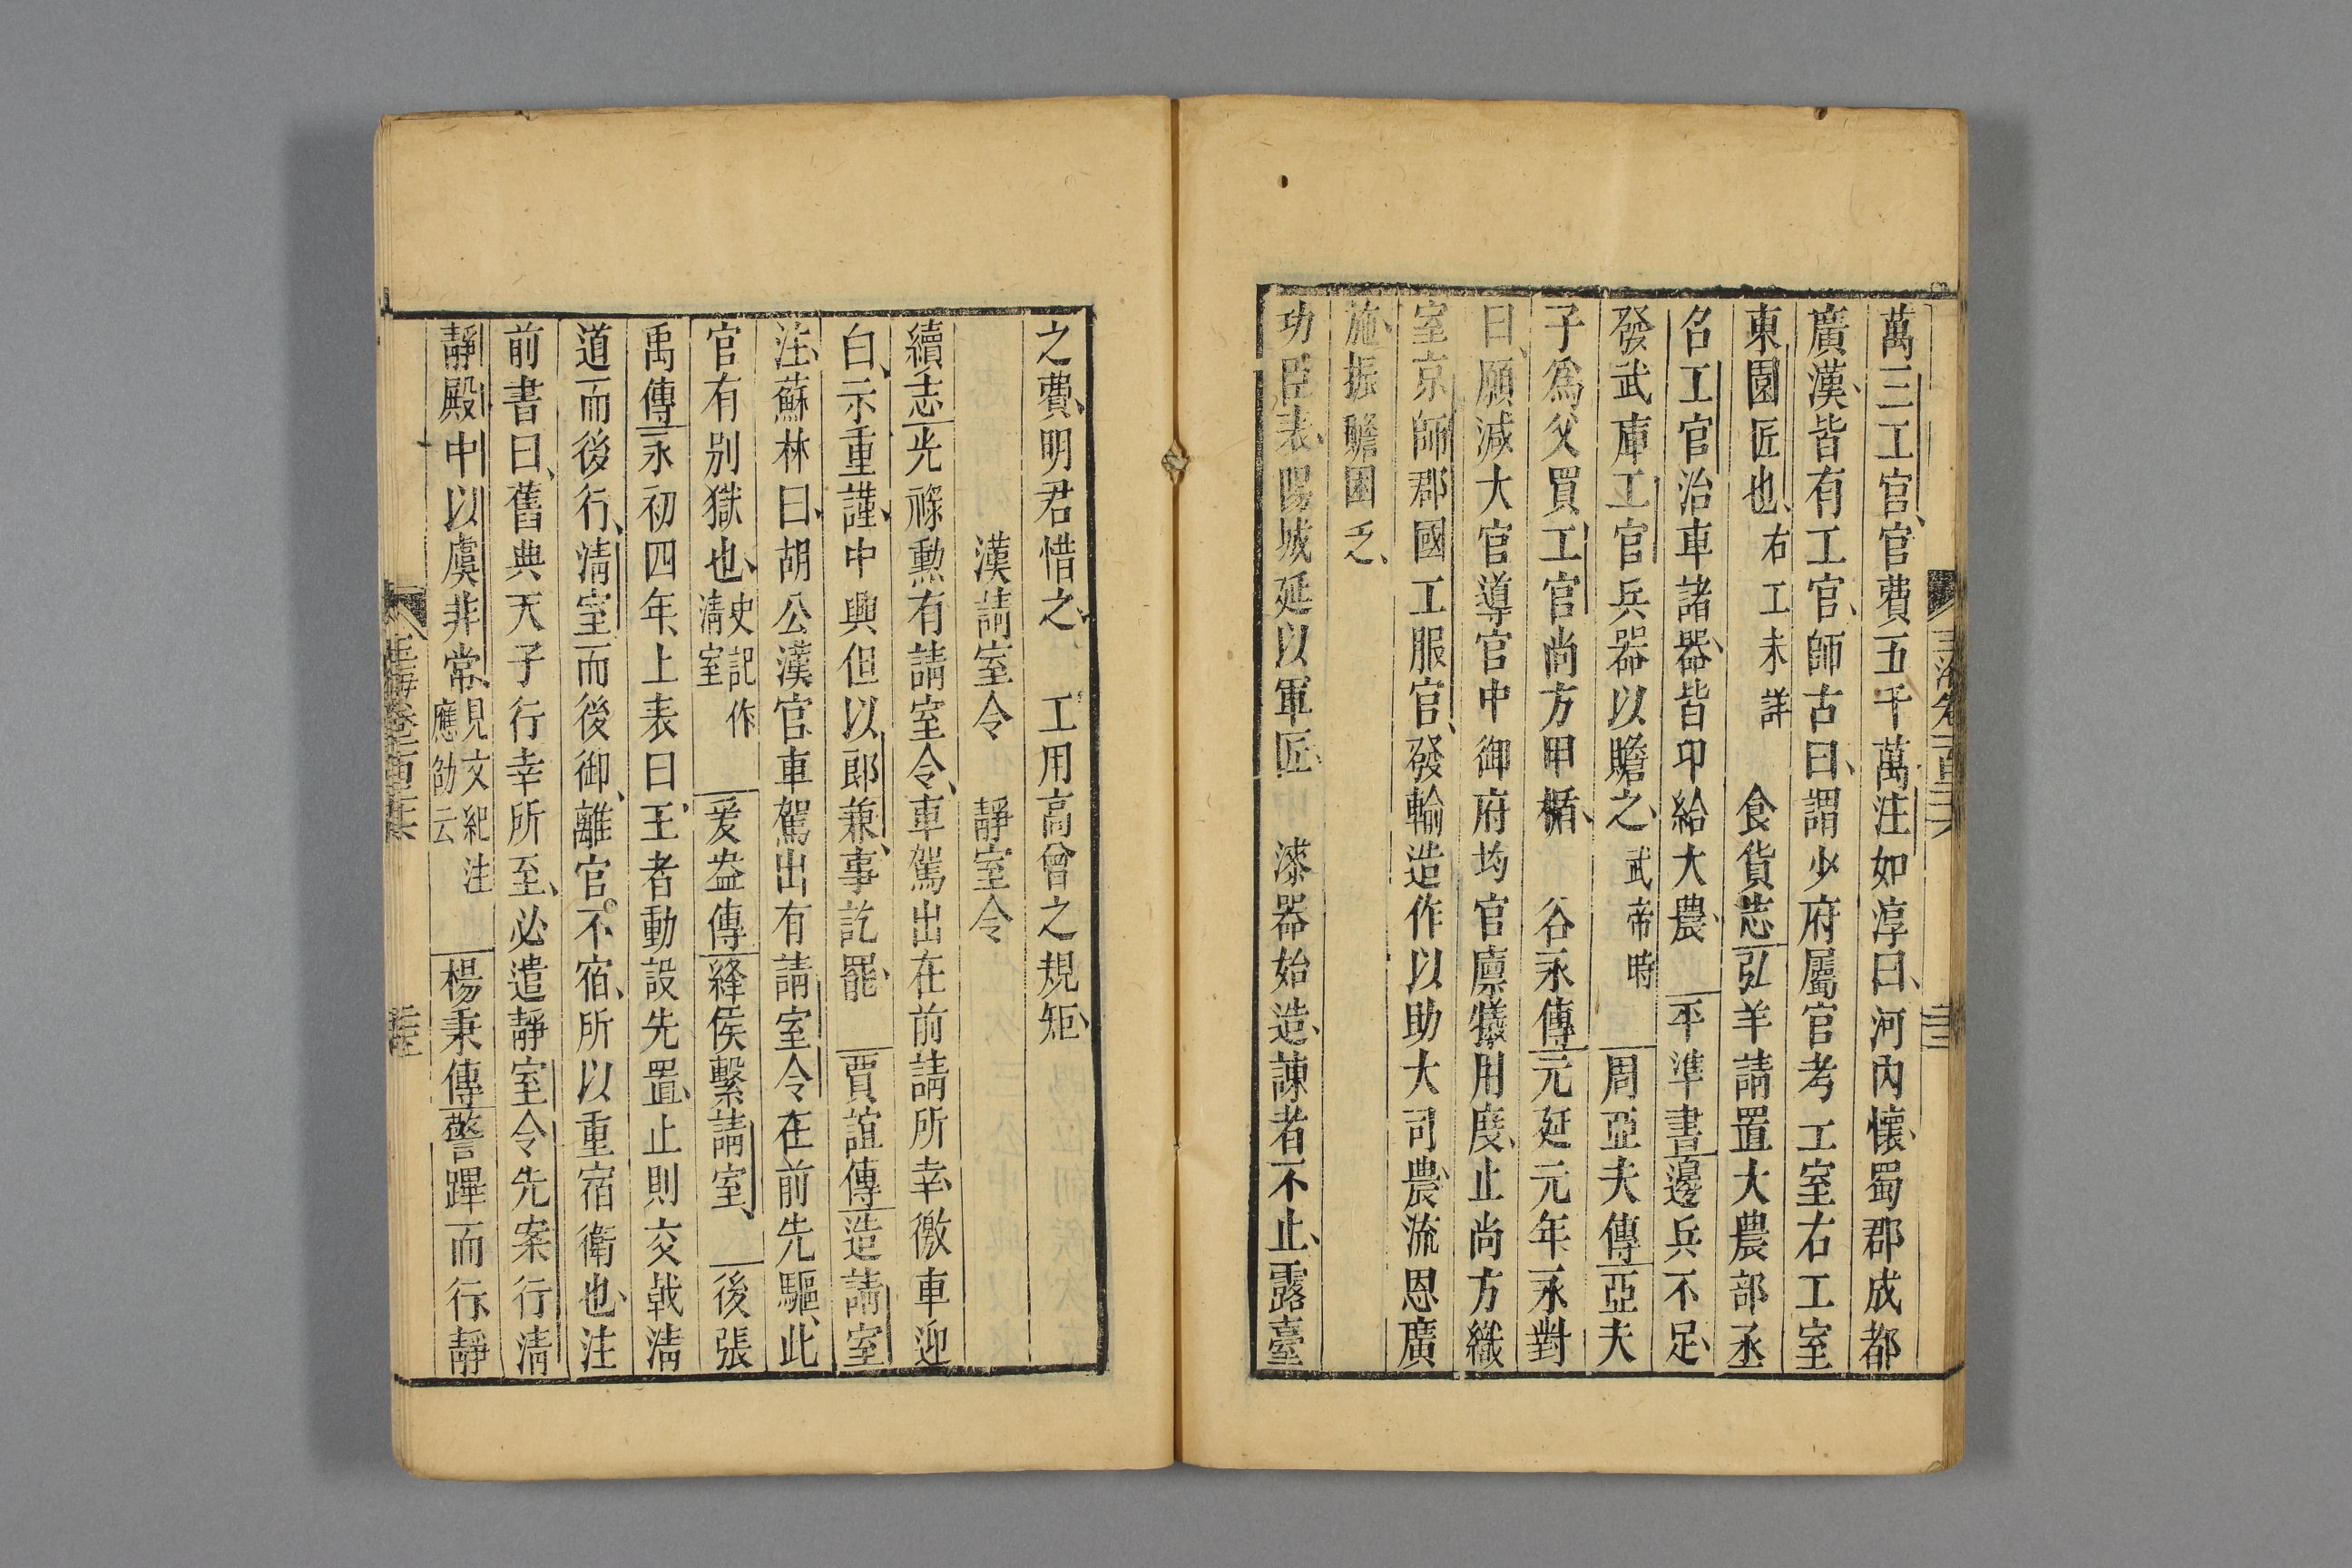 萬三工官、官費五千萬注如淳曰、河內懷、蜀郡成都
廣漢、皆有工官、師古曰、謂少府屬官考工室右工室
東園匠也、右工未詳　食貨志弘羊請置大農部丞
名工官治車諸器、皆卬給大農、平準書邊兵不足、
發武庫工官兵器以贍之、武帝時　周亞夫傳亞夫
子爲父買工官尚方甲楯、　谷永傳元延元年永對
曰、願減大官導官中御府均官廩犧用度、止尚方織
室京師郡國工服官、發輸造作以助大司農、流恩廣
施、振贍困乏、
功臣表、陽城延以軍匠、　漆器始造、諫者不止、露臺
之費、明君惜之、　工用高曾之規矩、
漢請室令　靜室令
續志光祿勳有請室令、車駕出在前請所幸、徼車迎
白、示重謹、中興但以郎兼、事訖罷、　賈誼傳造請室
注、蘇林曰、胡公漢官車駕出有請室令在前先驅、此
官有別獄也、史記作清室　爰盎傳絳侯繫請室、　後張
禹傳永初四年、上表曰、王者動設先置、止則交戟清
道而後行、清室而後御、離宮不宿、所以重宿衛也、注
前書曰、舊典天子行幸所至、必遣靜室令先案行清
靜殿中以虞非常、見文紀注應劭云　楊秉傳警蹕而行、靜